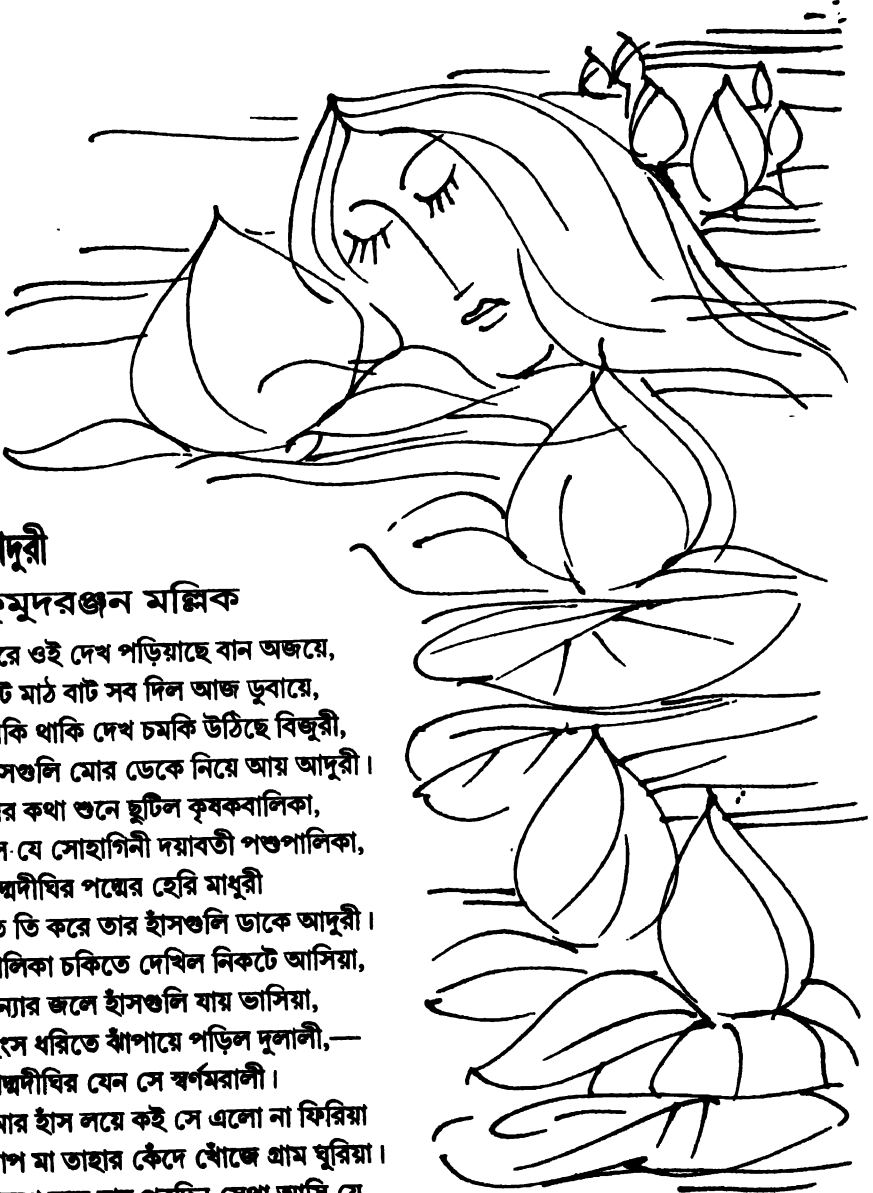 কুমুদরঞ্জন মল্লিক
ওই দেখ পড়িয়াছে বান অজয়ে,
মাঠ বাট সব দিল আজ ডুবায়ে,
থাকি দেখ চমকি উঠিছে বিজুরী,
মোর ডেকে নিয়ে আয় আদুরী।
কথা শুনে ছুটিল কৃষকবালিকা,
যে সোহাগিনী দয়াবতী পশুপালিকা,
পদ্মের হেরি মাধুরী
তি করে তার হাঁসগুলি ডাকে আদুরী।
চকিতে দেখিল নিকটে আসিয়া,
জলে হাঁসগুলি যায় ভাসিয়া,
ধরিতে ঝাঁপায়ে পড়িল দুলালী,—
যেন সে স্বর্ণমরালী।
হাঁস লয়ে কই সে এলো না ফিরিয়া
মা তাহার কেঁদে খোঁজে গ্রাম ঘুরিয়া।